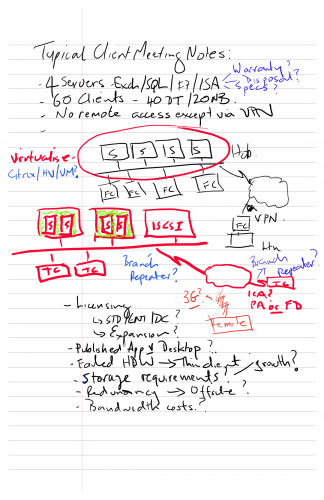 Typical Client Meeting Notes:
- 4 Servers - Exch/SQL/F+P/ISA
Warranty?
Disposal?
Specs?
- 60 Clients - 40 DT/20NB.
- No remote access except via VPN
-
Virtualise.
Citrix/HV/VM?
S S S S
FC FC FC FC
VPN.
FC
S S S S ISCSI
TC TC
Branch Repeater?
Branch Repeater?
TC
ICA?
PA or PD
3G?
remote
- Licensing
↳ STD/ENT/DC?
↳ Expansion?
- Published App v Desktop?
- Failed HDW → Thin client / growth?
- Storage requirements?
- Redundancy → Offsite?
- Bandwidth costs?